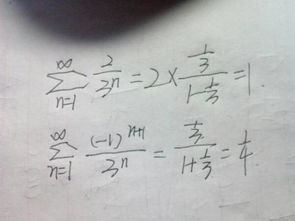 ∞∑n=1 2/3ⁿ = 2 × (1/3)/(1-1/3) = 1.
∞∑n=1 (-1)ⁿ⁺¹/3ⁿ = (1/3)/(1+1/3) = 1/4